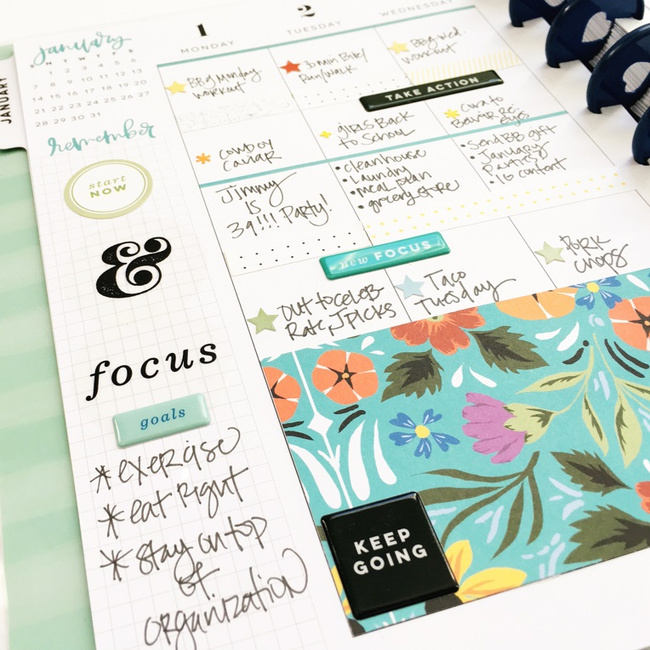 JANUARY
january
M T W T F S
1 2 3 4 5 6
7 8 9 10 11 12 13
14 15 16 17 18 19 20
21 22 23 24 25 26 27
28 29 30 31
remember
start
NOW
&
focus
goals
*exercise
*eat right
*stay on top
of
organization
1
MONDAY
BBG Monday
workout
cowboy
caviar
Jimmy
IS
39!!! Party!
out to celeb
Rate, J picks
2
TUESDAY
30 min Bike/
Run/walk
girls Back
to School
• clean house
• laundry
• meal plan
• grocery store
Taco
Tuesday
WEDNESDAY
BBG Wed.
workout
• Send BB gift
• January
• IG content
pork
chops
TAKE ACTION
new FOCUS
KEEP
GOING